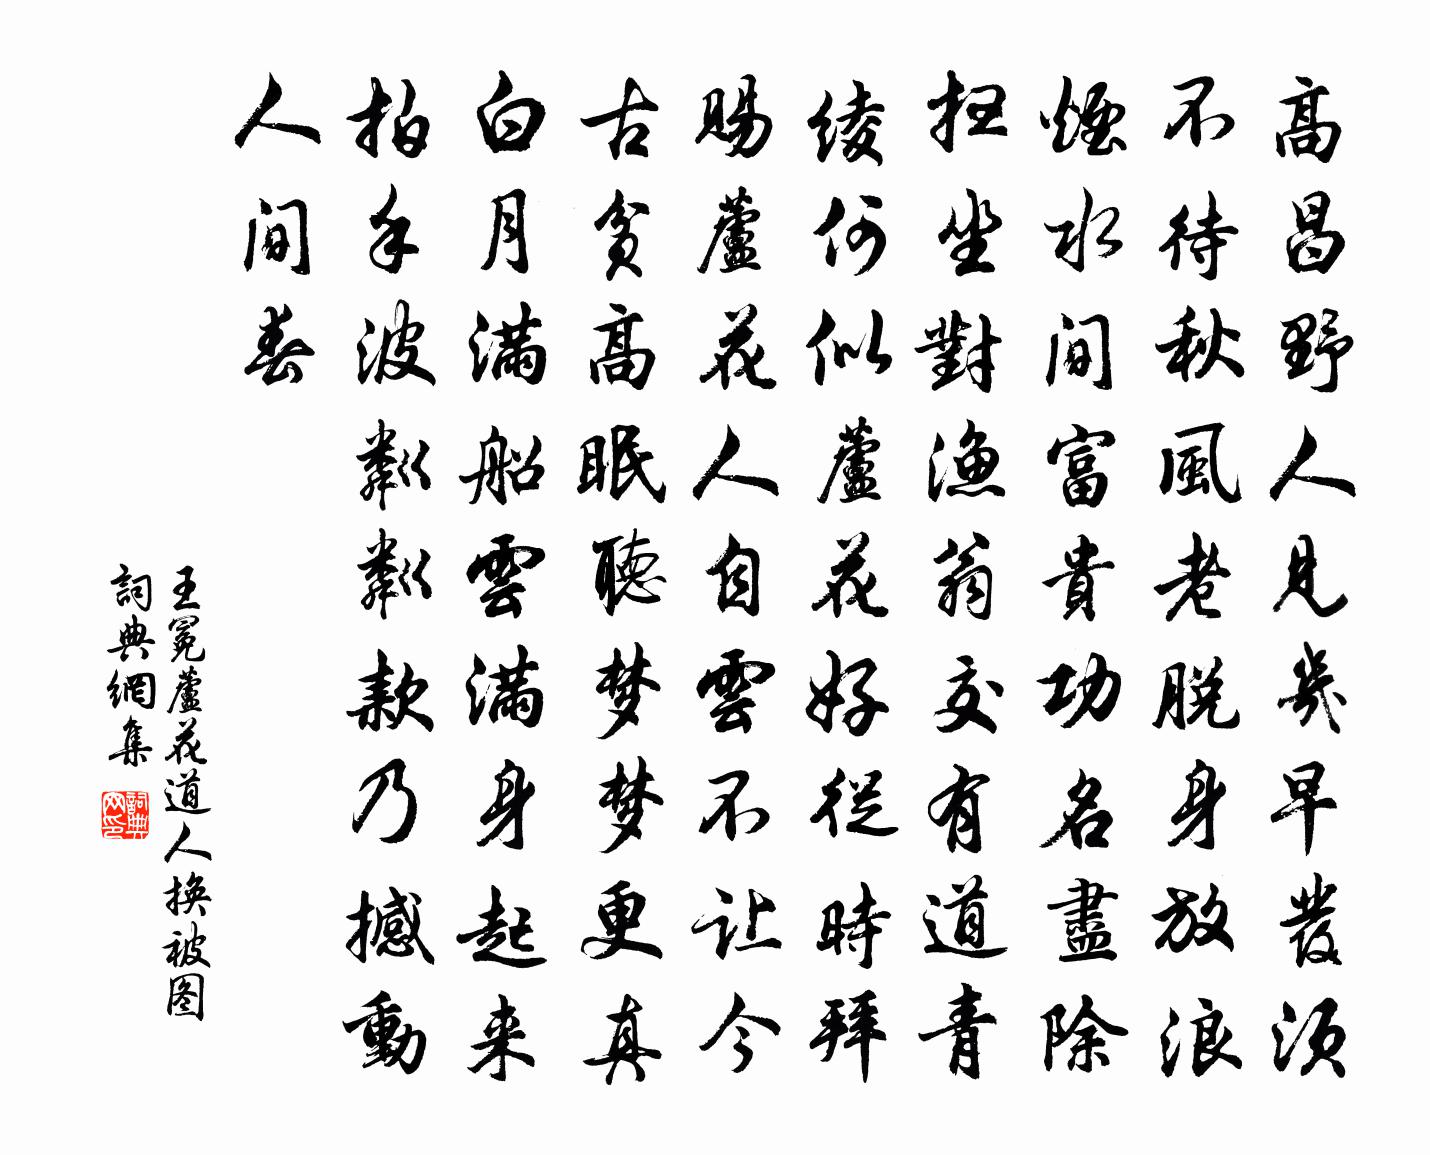 高昌野人見幾早發須
不待秋風老脱身放浪
煙水間富貴功名盡除
扫坐對漁翁交有道青
綾何似蘆花好從時拜
賜蘆花人自雲不让今
古貧高眠聽梦梦更真
白月滿船雲滿身起来
拍手波粼粼款乃撼動
人間春
王冕蘆花道人换被图
詞典網集
詞典网印